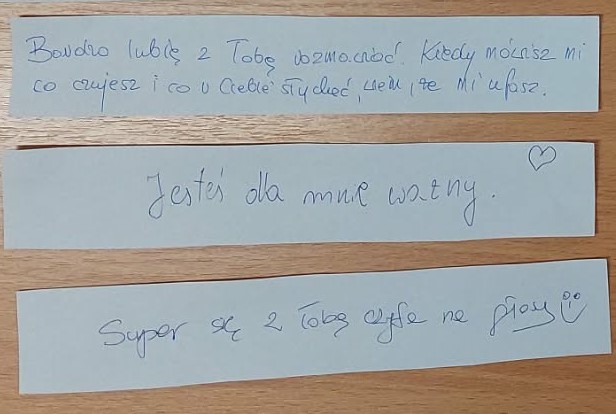 Bardzo lubię z Tobą rozmawiać. Kiedy mówisz mi
co czujesz i co u Ciebie słychać, wiem, że mi ufasz.
Jesteś dla mnie ważny.
Super się z Tobą czyta na głos